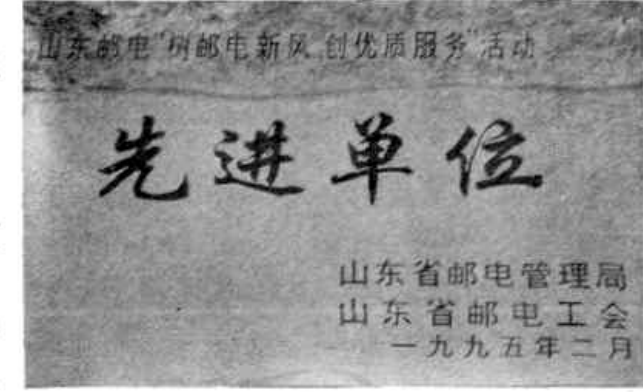 山东邮电"树邮电新风 创优质服务"活动
先进单位
山东省邮电管理局
山东省邮电工会
一九九五年二月